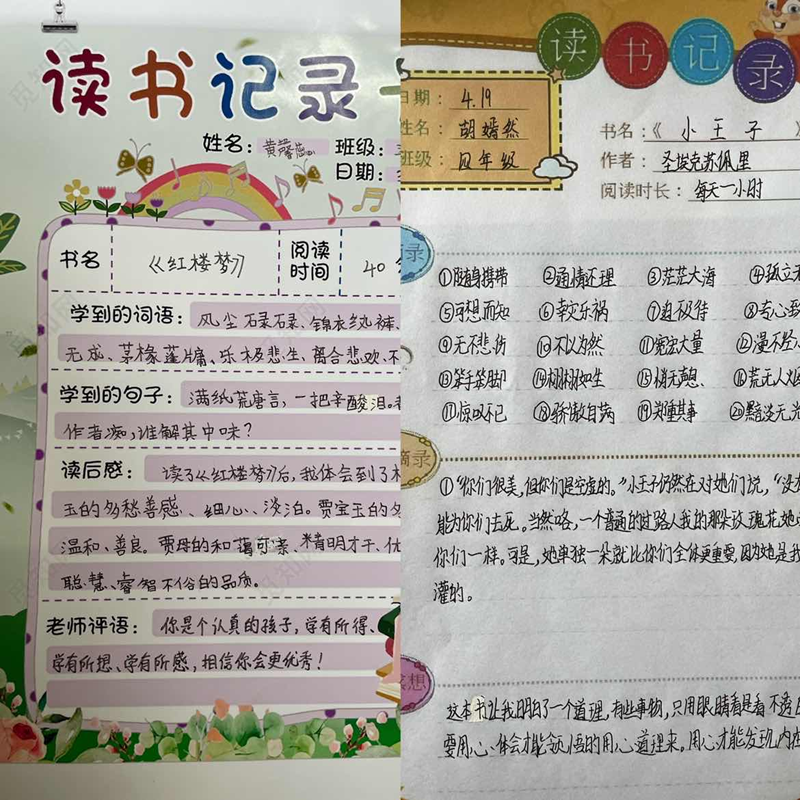 读书记录
姓名：黄馨蕊
班级：
日期：
书名
《红楼梦》
阅读时间
40
学到的词语：风尘碌碌、锦衣纨裤、
无成、茅椽蓬牖、乐极悲生、离合悲欢、不
学到的句子：满纸荒唐言，一把辛酸泪。
作者痴，谁解其中味？
读后感：读了《红楼梦》后，我体会到了
玉的多愁善感、细心、淡泊。贾宝玉的
温和、善良。贾母的和蔼可亲、精明才干、
聪慧、睿智不俗的品质。
老师评语：你是个认真的孩子，学有所得、
学有所想、学有所感，相信你会更优秀！
读书记录
日期：4.19
姓名：胡嫣然
班级：四年级
书名：《小王子》
作者：圣埃克苏佩里
阅读时长：每天一小时
录
①随身携带 ②通情达理 ③茫茫大海 ④孤立
⑤可想而知 ⑥幸灾乐祸 ⑦迫不及待 ⑧专心
⑨无不悲伤 ⑩不以为然 ⑪宽宏大量 ⑫漫不经
⑬笨手笨脚 ⑭栩栩如生 ⑮稍无 ⑯荒无人烟
⑰惊叹不已 ⑱骄傲自满 ⑲郑重其事 ⑳黯淡无光
摘录
①“你们很美，但你们是空虚的。”小王子仍然在对她们说，“没
能为你们去死。当然咯，一个普通的过路人我的那朵玫瑰花，她
你们一样。可是，她单独一朵就比你们全体更重要，因为她是我
灌的。
感想
这本书让我明白了一个道理，有些事物，只用眼睛看是看不透
要用心、体会才能领悟的用心道理来。用心才能发现内在